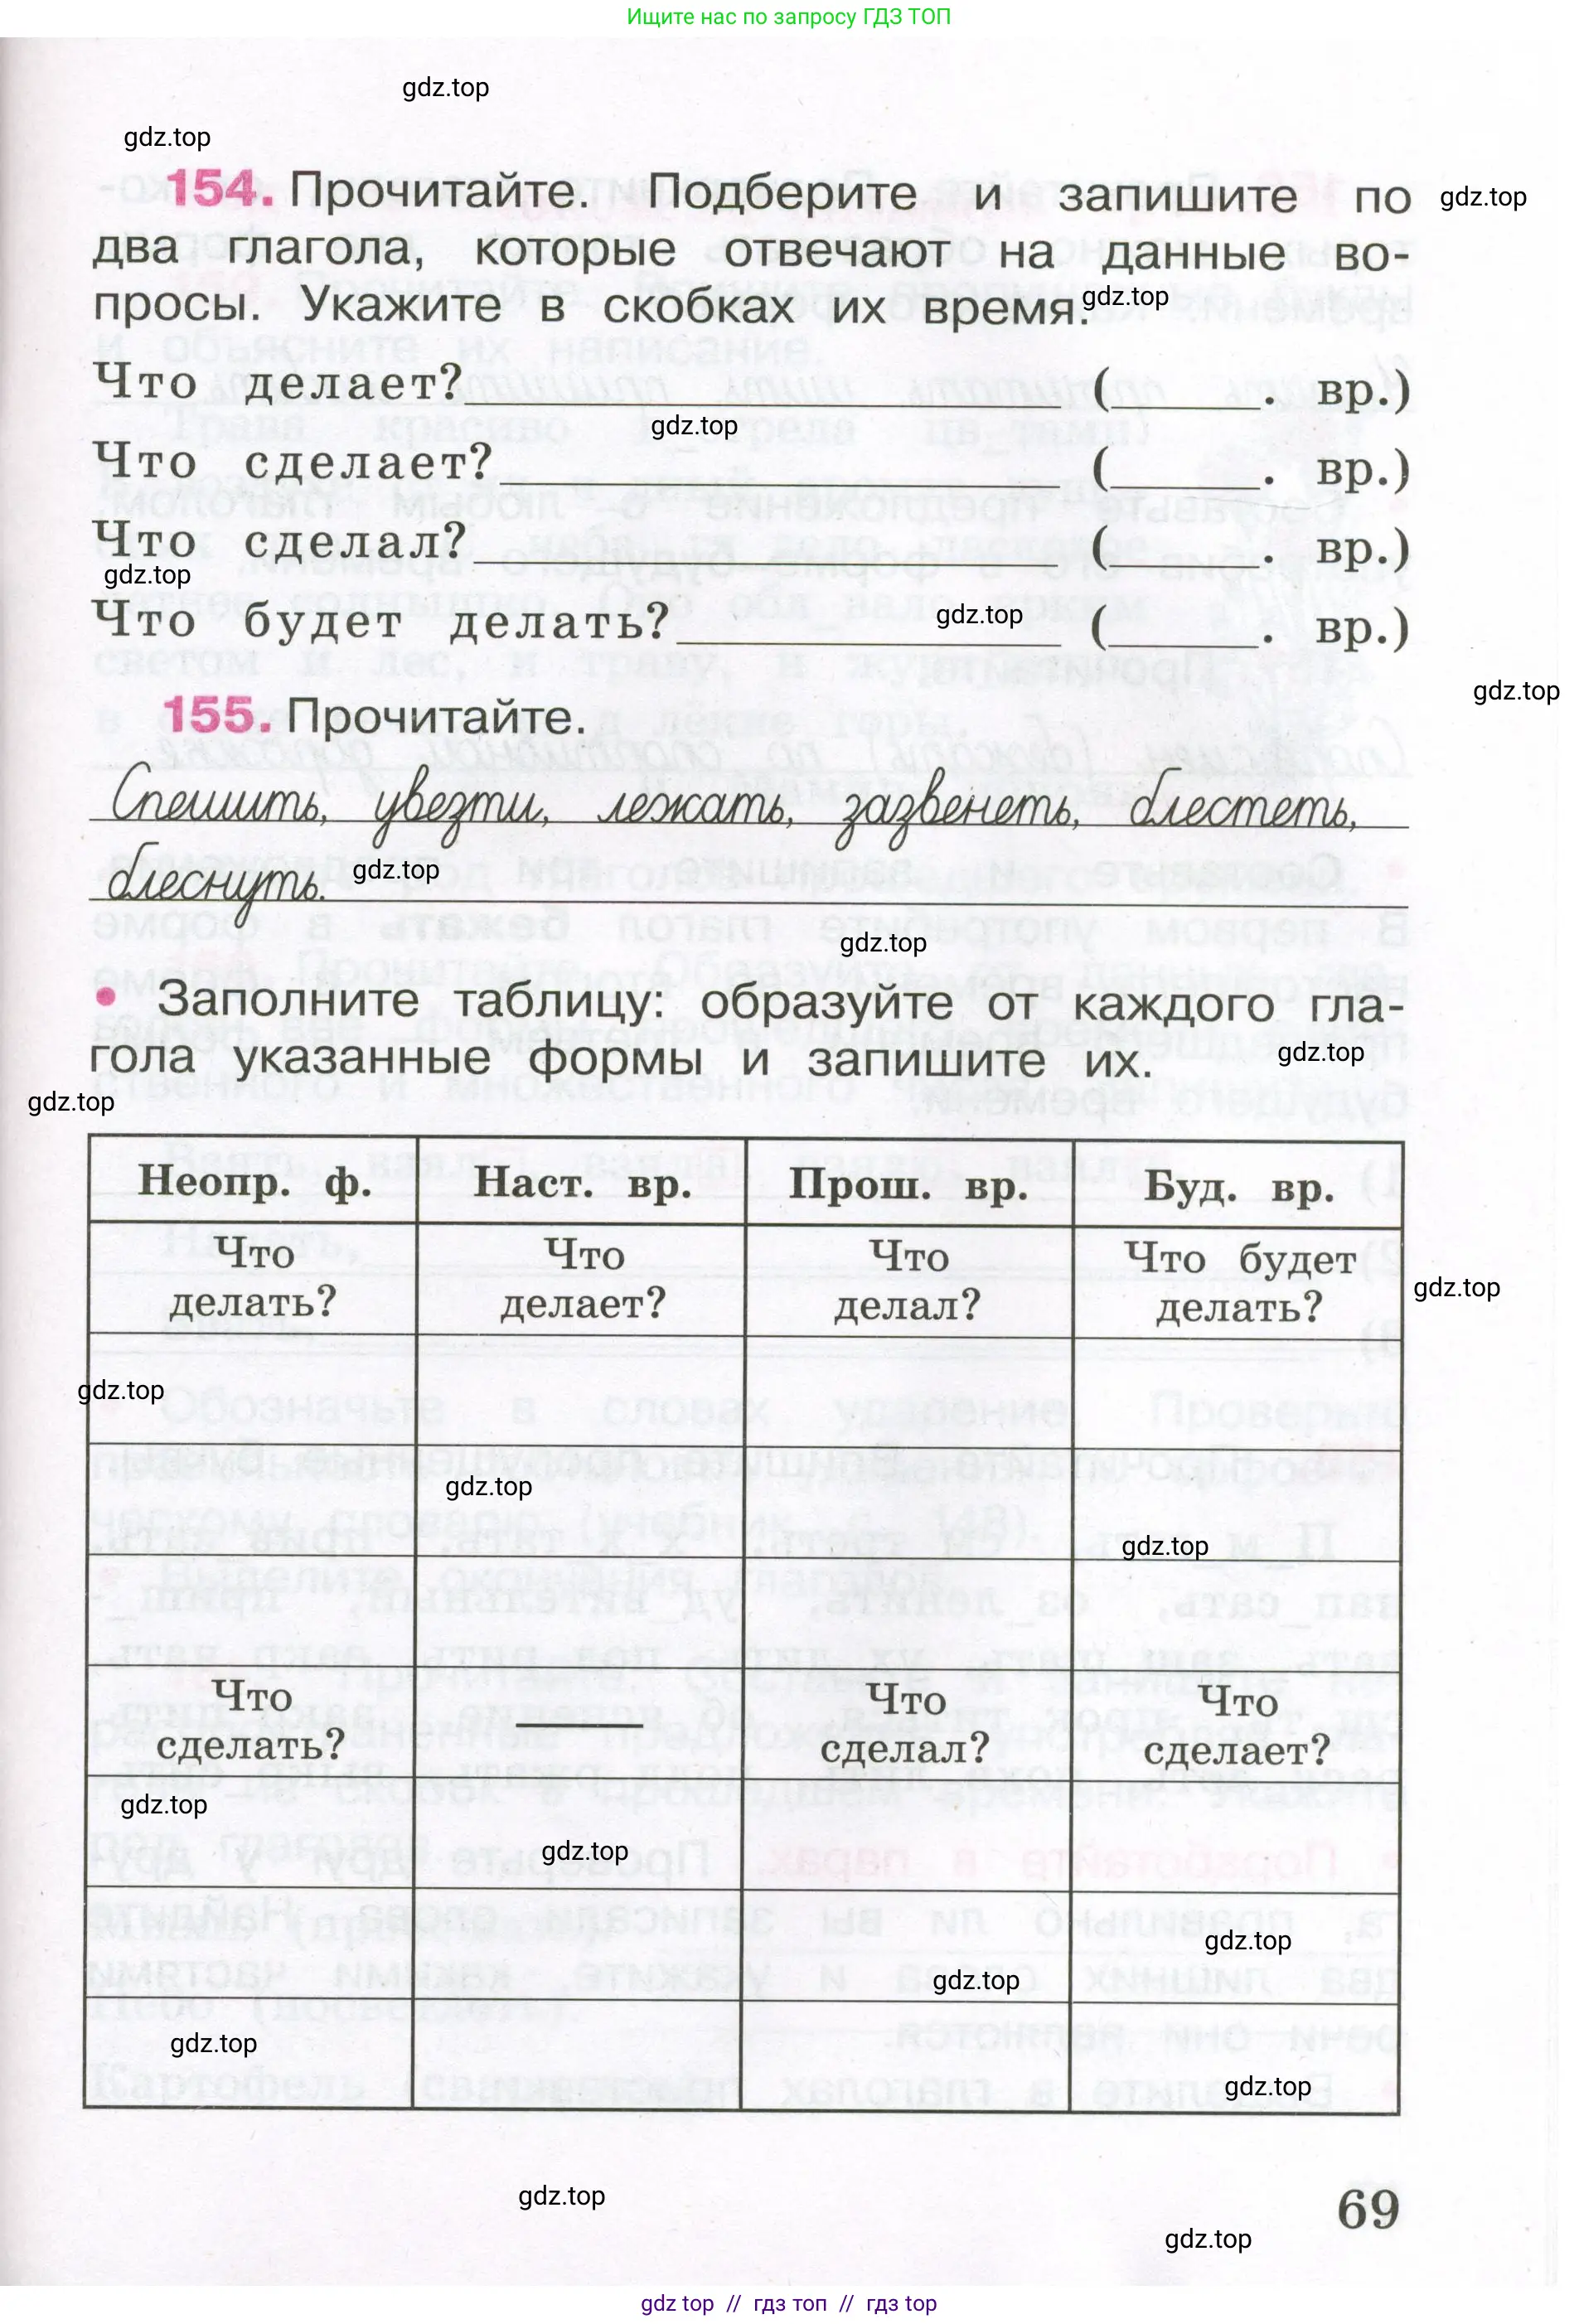 Ищите нас по запросу ГДЗ ТОП
gdz.top
gdz.top
154. Прочитайте. Подберите и запишите по
gdz.top
два глагола, которые отвечают на данные во-
просы. Укажите в скобках их время.
gdz.top
Что делает?____ (____. вр.)
gdz.top
Что сделает?____ (____. вр.)
Что сделал?____ (____. вр.)
gdz.top
Что будет делать?____ (____. вр.)
gdz.top
gdz.top
155. Прочитайте.
Спешить, увезти, лежать, зазвенеть, блестеть,
блеснуть.
gdz.top
gdz.top
• Заполните таблицу: образуйте от каждого гла-
гола указанные формы и запишите их.
gdz.top
gdz.top
Неопр. ф. Наст. вр. Прош. вр. Буд. вр.
Что Что Что Что будет
делать? делает? делал? делать?
gdz.top
gdz.top
gdz.top
gdz.top
Что — Что Что
сделать? сделал? сделает?
gdz.top
gdz.top
gdz.top
gdz.top
gdz.top
gdz.top
gdz.top
69
gdz.top
gdz top // гдз топ // гдз top